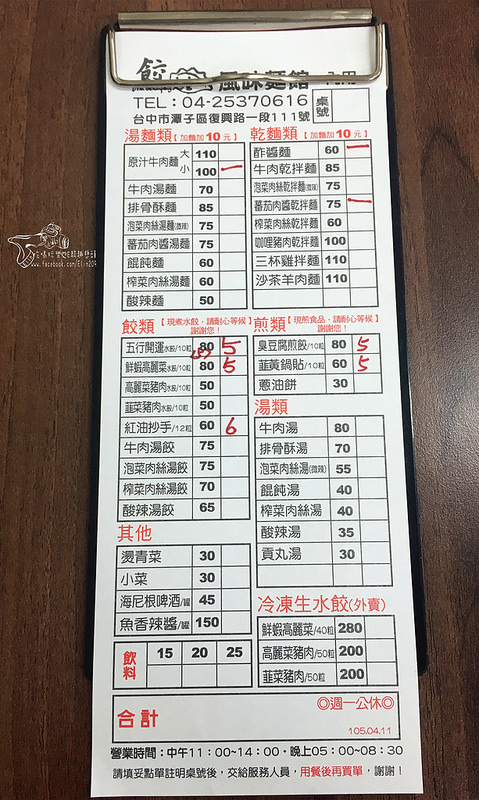 餃
風味麵館
TEL：04-25370616 桌號
台中市潭子區復興路一段111號
湯麵類【加麵加10元】
原汁牛肉麵 大 110
小 100 一
牛肉湯麵 70
排骨酥麵 85
泡菜肉絲湯麵(微辣) 75
蕃茄肉醬湯麵 75
餛飩麵 60
榨菜肉絲湯麵 60
酸辣麵 50
乾麵類【加麵加10元】
酢醬麵 60 一
牛肉乾拌麵 85
泡菜肉絲乾拌麵(微辣) 75
蕃茄肉醬乾拌麵 75 一
榨菜肉絲乾麵 60
咖哩豬肉乾拌麵 100
三杯雞拌麵 110
沙茶羊肉麵 110
餃類【現煮水餃，請耐心等候 謝謝您！】
五行開運水餃/10粒 80 5
鮮蝦高麗菜水餃/10粒 80 5
高麗菜豬肉水餃/10粒 50
韮菜豬肉水餃/10粒 50
紅油抄手/12粒 60 6
牛肉湯餃 75
泡菜肉絲湯餃 75
榨菜肉絲湯餃 70
酸辣湯餃 65
煎類【現煎食品，請耐心等候 謝謝您！】
臭豆腐煎餃/10粒 80 5
韮黃鍋貼/10粒 60 5
蔥油餅 30
湯類
牛肉湯 80
排骨酥湯 70
泡菜肉絲湯(微辣) 55
餛飩湯 40
榨菜肉絲湯 40
酸辣湯 35
貢丸湯 30
其他
燙青菜 30
小菜 30
海尼根啤酒/罐 45
魚香辣醬/罐 150
飲料 15 20 25
冷凍生水餃(外賣)
鮮蝦高麗菜/40粒 280
高麗菜豬肉/50粒 200
韮菜豬肉/50粒 200
合計
◎週一公休◎
105.04.11
營業時間：中午11：00~14：00・晚上05：00~08：30
請填妥點單註明桌號後，交給服務人員，用餐後再買單，謝謝！